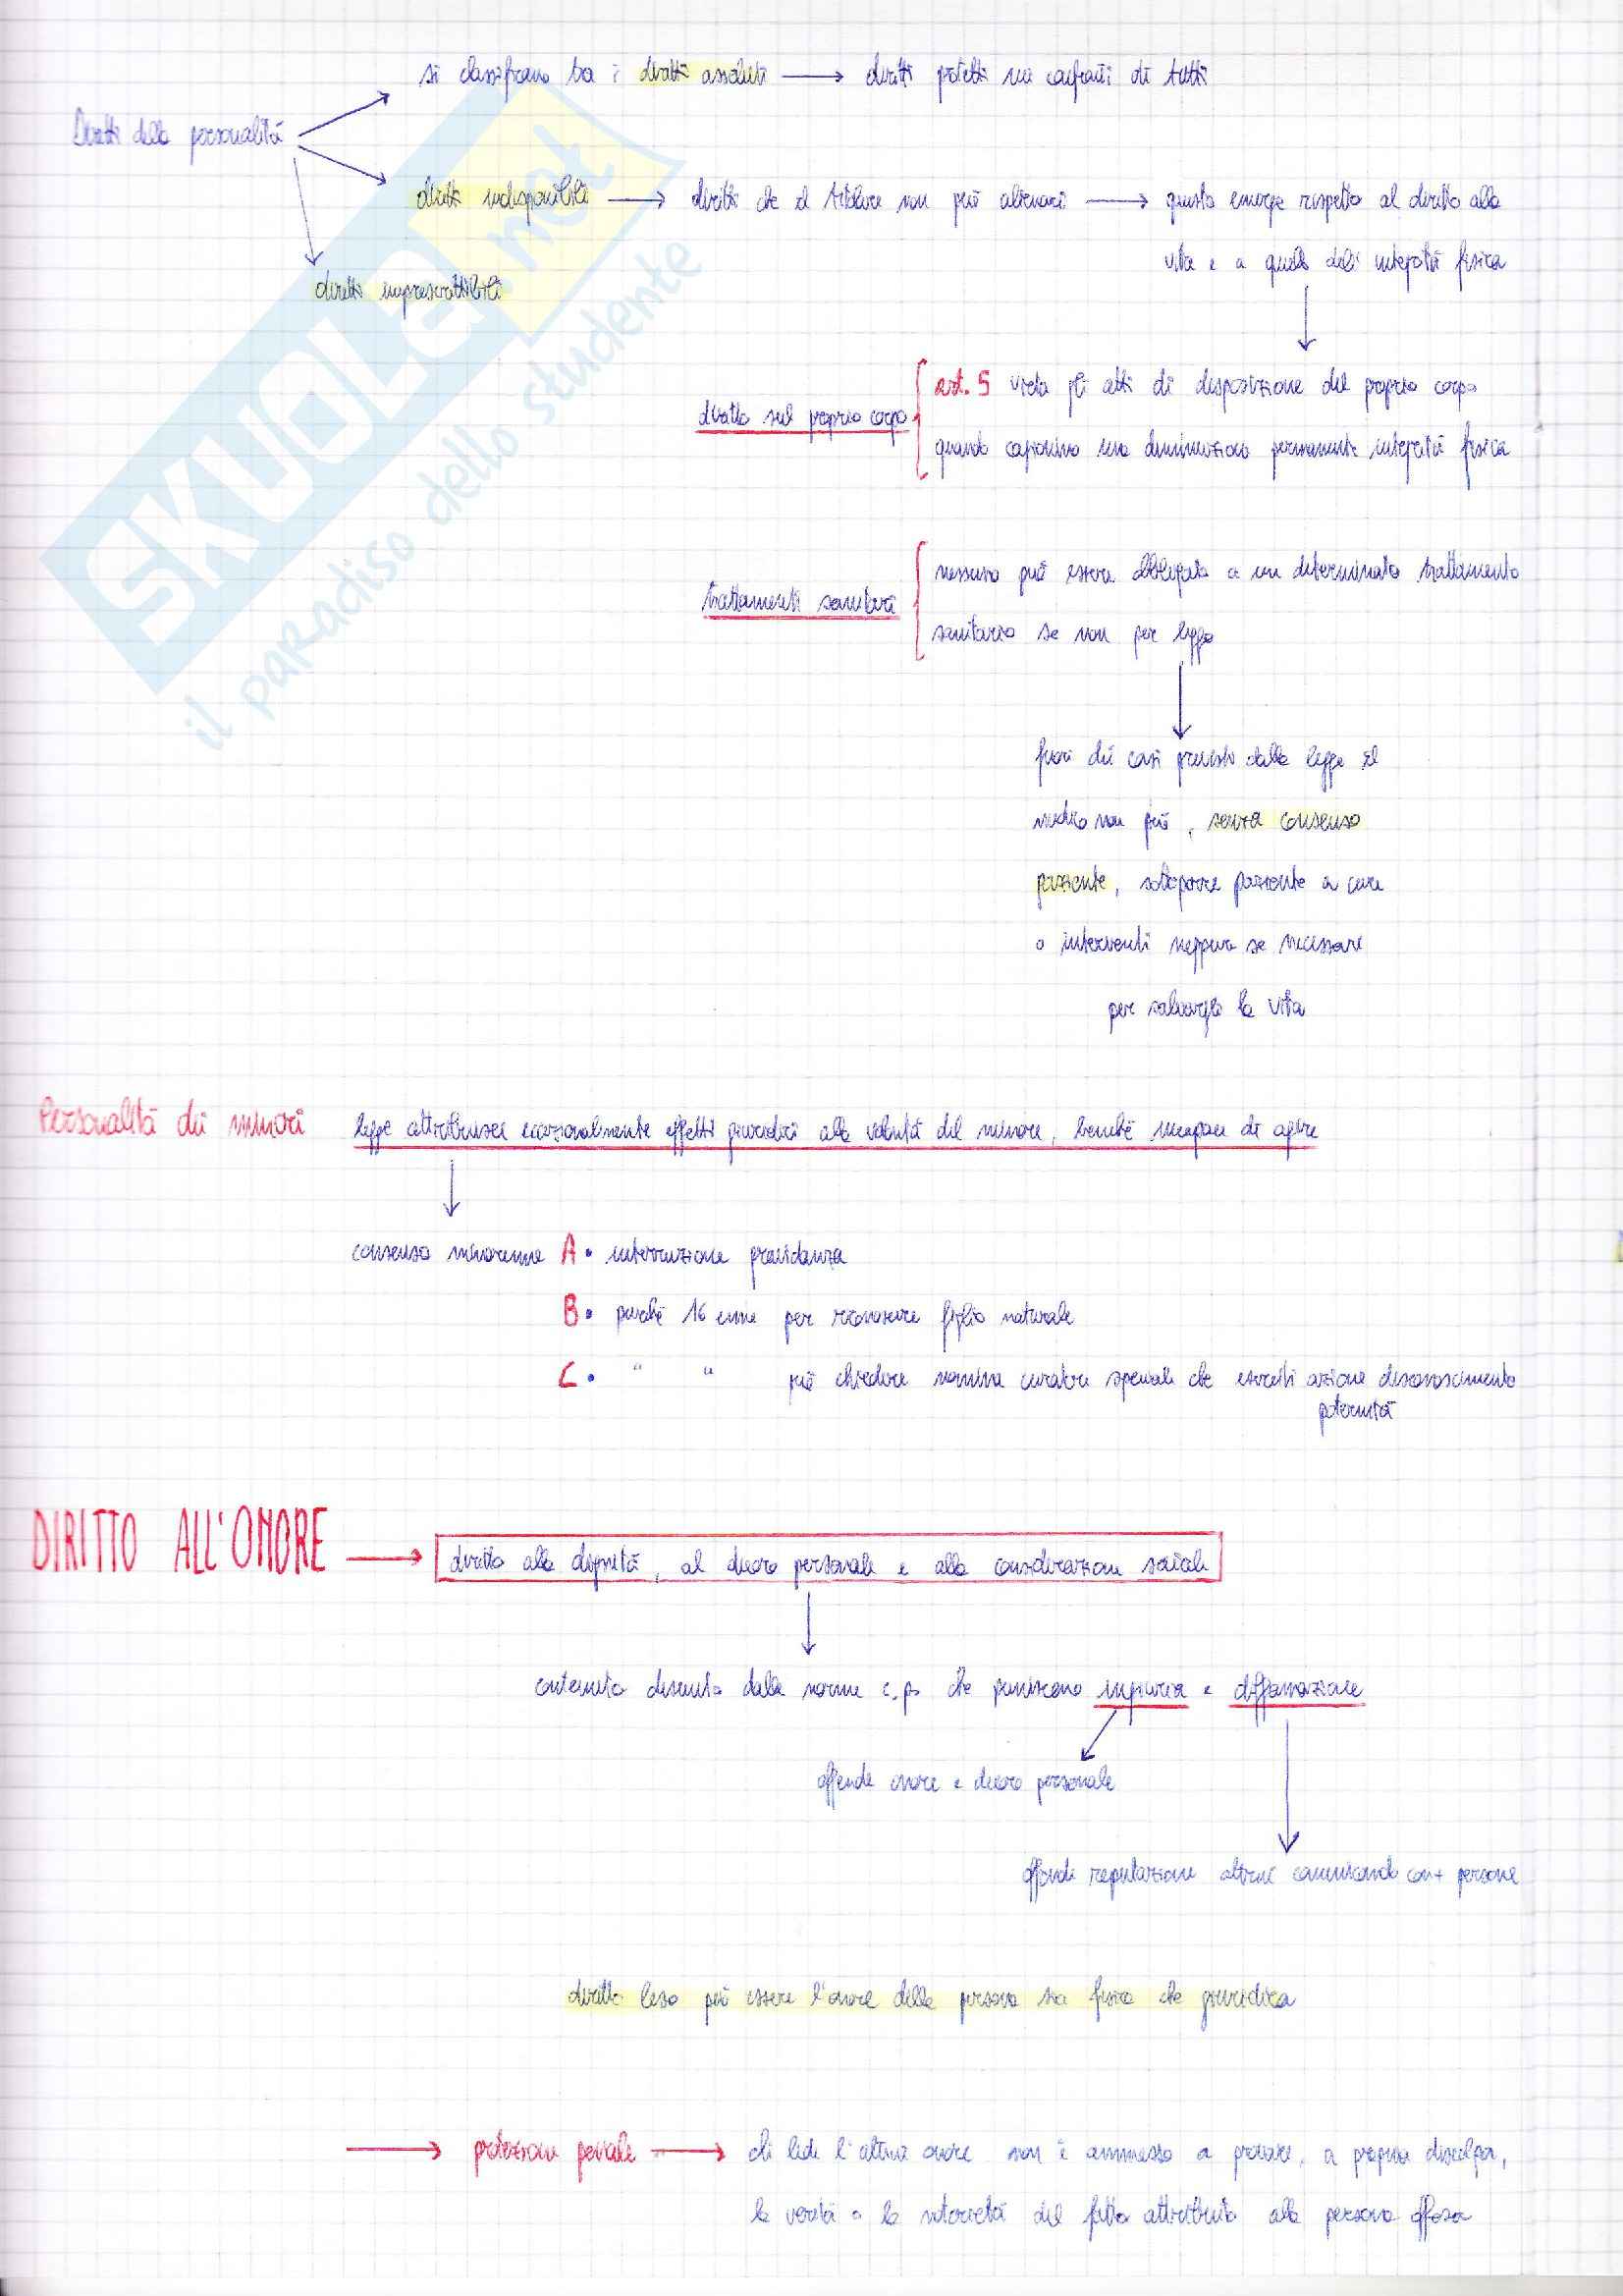 si classificano tra i diritti assoluti → diritti protetti nei confronti di tutti
Diritti della personalità
diritti indisponibili → diritti che il titolare non può alienare → questo emerge rispetto al diritto alla
vita e a quello dell'integrità fisica
diritti imprescrittibili
SKUOLA.net
il paradiso dello studente
art. 5 vieta gli atti di disposizione del proprio corpo
diritto sul proprio corpo
quando cagionino una diminuzione permanente integrità fisica
nessuno può essere obbligato a un determinato trattamento
trattamenti sanitari
sanitario se non per legge
fuori dei casi previsti dalla legge il
medico non può, senza consenso
paziente, sottoporre paziente a cure
o interventi neppure se necessari
per salvargli la vita
Personalità dei minori legge attribuisce eccezionalmente effetti giuridici alla volontà del minore, benché incapace di agire
consenso minorenne A• interruzione gravidanza
B• purché 16 enne per riconoscere figlio naturale
C• " " può chiedere nomina curatore speciale che eserciti azione disconoscimento
paternità
DIRITTO ALL'ONORE → diritto alla dignità, al decoro personale e alla considerazione sociale
contenuto desunto dalle norme c.p. che puniscono ingiuria e diffamazione
offende onore e decoro personale
offende reputazione altrui comunicando con + persone
diritto leso può essere l'onore della persona sia fisica che giuridica
→ protezione penale → chi lede l'altrui onore non è ammesso a provare, a propria discolpa,
la verità o la notorietà del fatto attribuito alla persona offesa